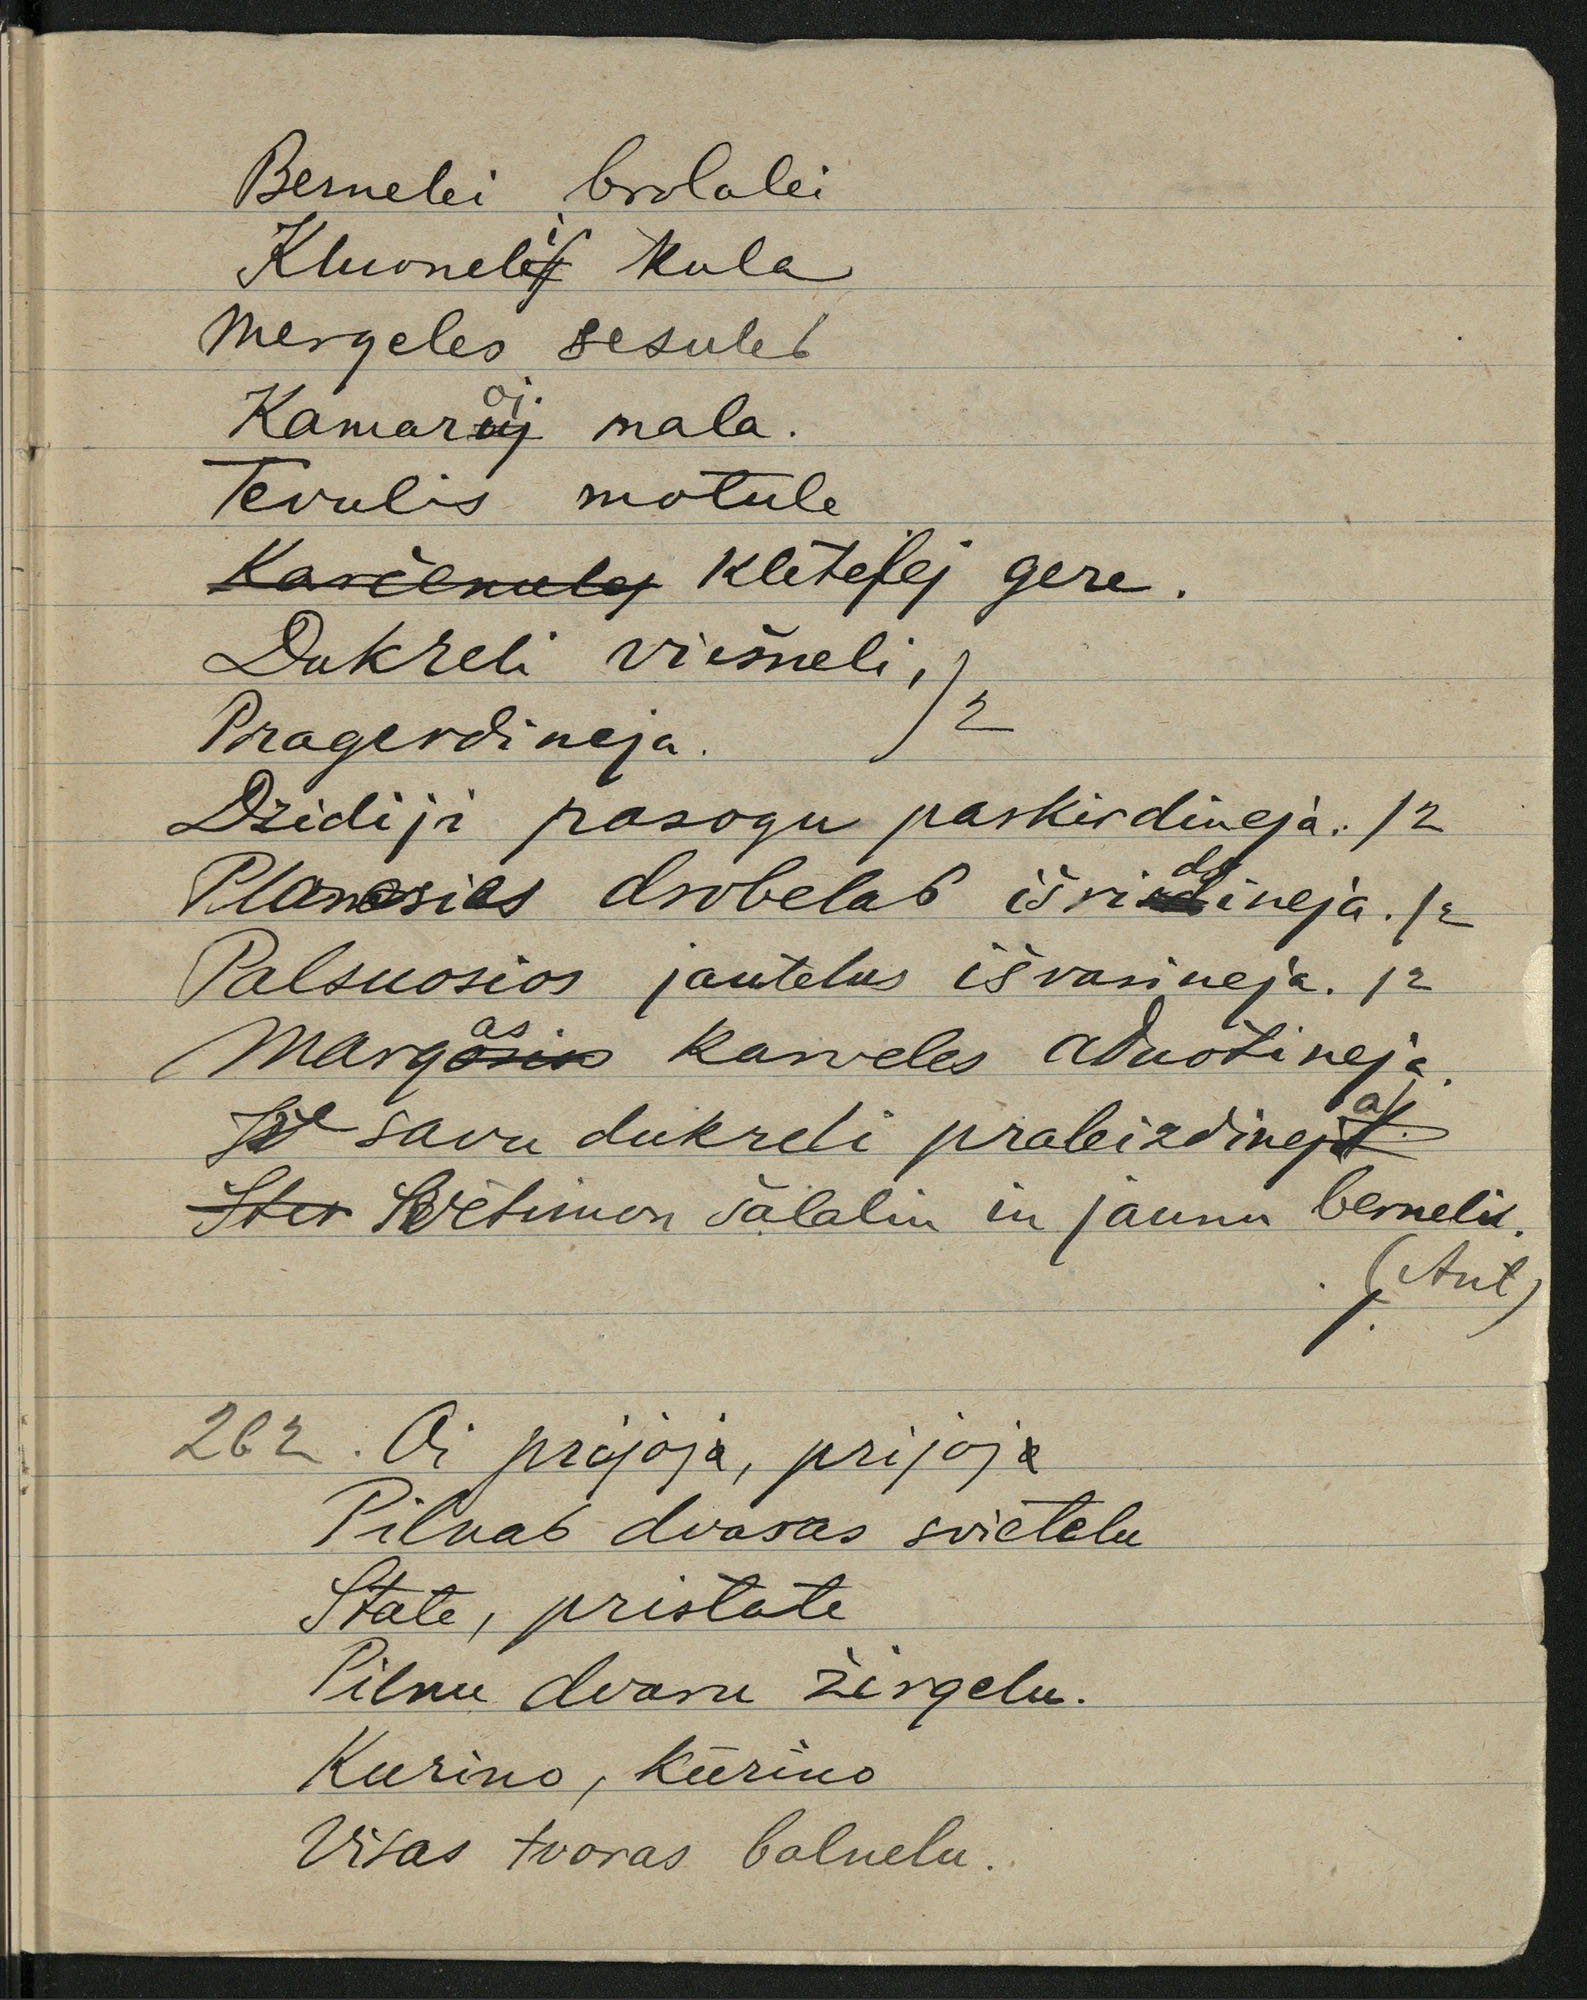 Bernelei brolalei
Kluoneli kula
Mergeles sesules
Kamaroj mala.
Tevulis motule
Karčemulej Kletelej gere.
Dukreli viešneli, /2
Pragerdineja.
Dzidiji pasogu paskirdineja. /2
Planosies drobelas išridineja. /2
Palsuosios jautelus išvarineja. /2
Margas karveles aduotineja.
savu dukreli praleizdineja.
Svetimon šalalin in jaunu bernelis.
(Ant)
262. Oi prijoja, prijoja
Pilnas dvaras svietelu
State, pristate
Pilnu dvaru žirgelu.
Kurino, kurino
Visas tvoras balnelu.